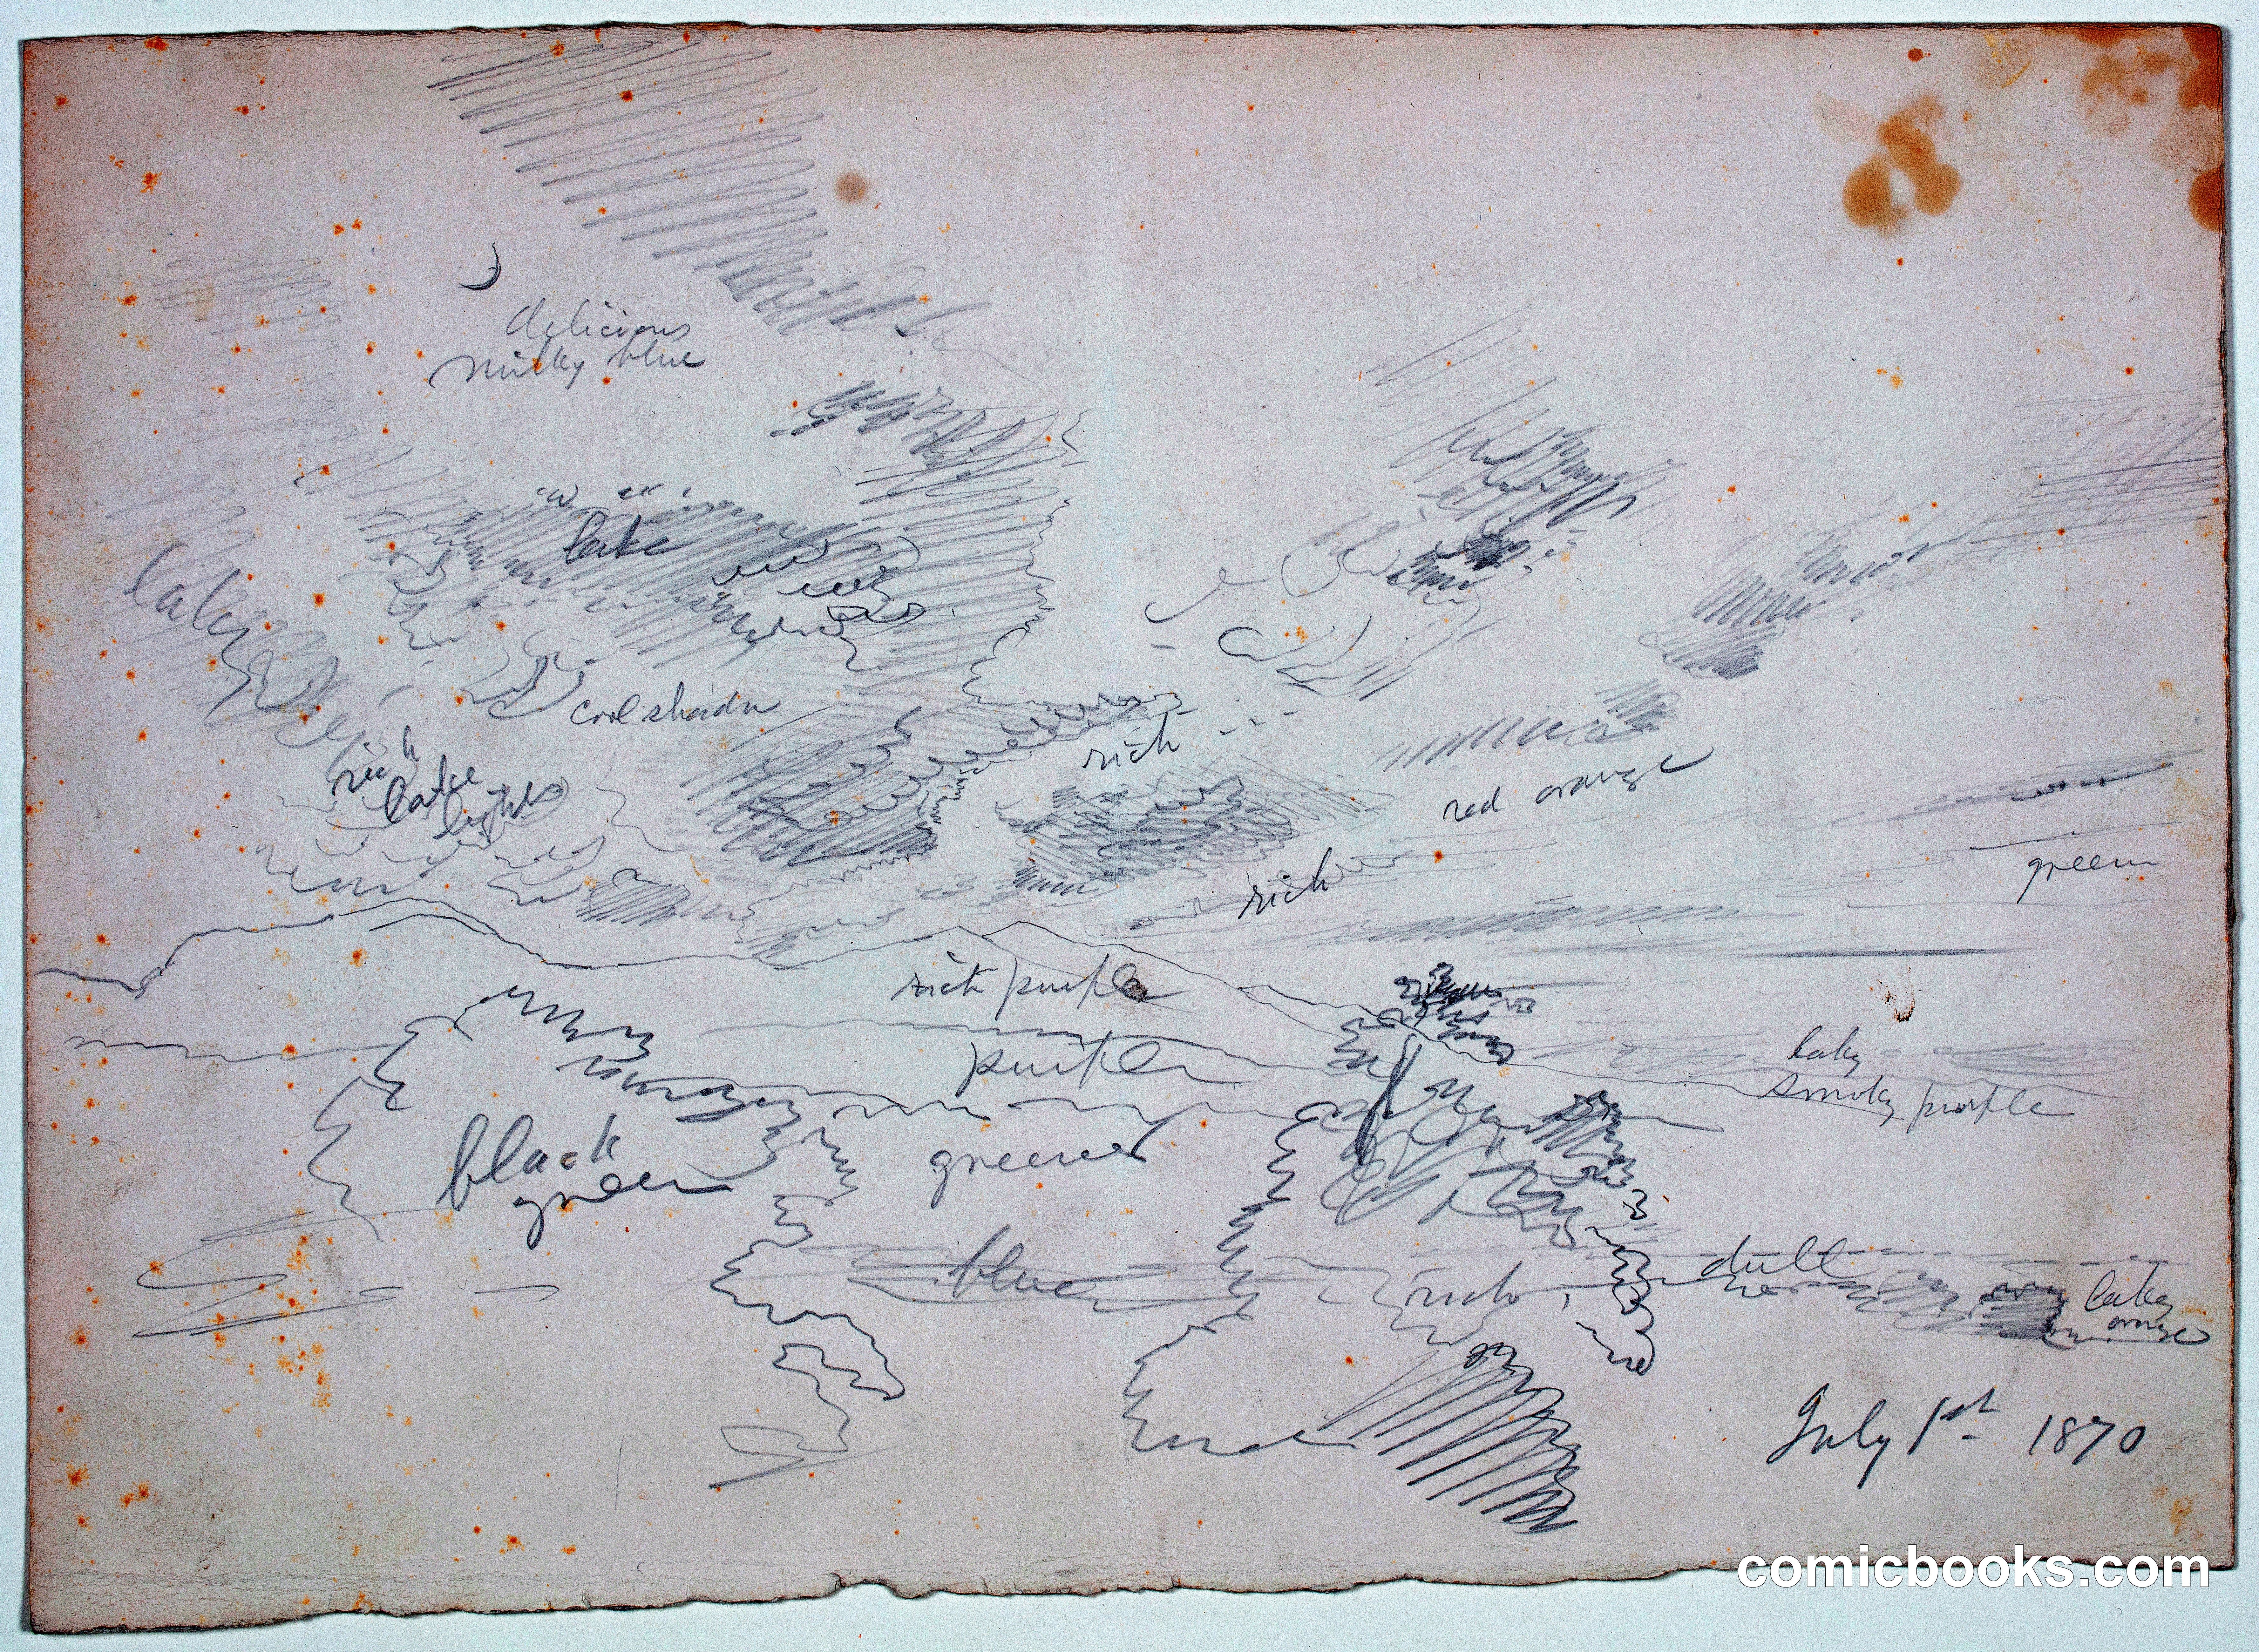 delicious
milky blue
lake
lakey
cool shadow
rich
lake
lights
rich
red orange
rich
green
rich purple
purple
laky
smoky purple
black
green
green
blue
rich
dull
laky
orange
July 1st 1870
comicbooks.com